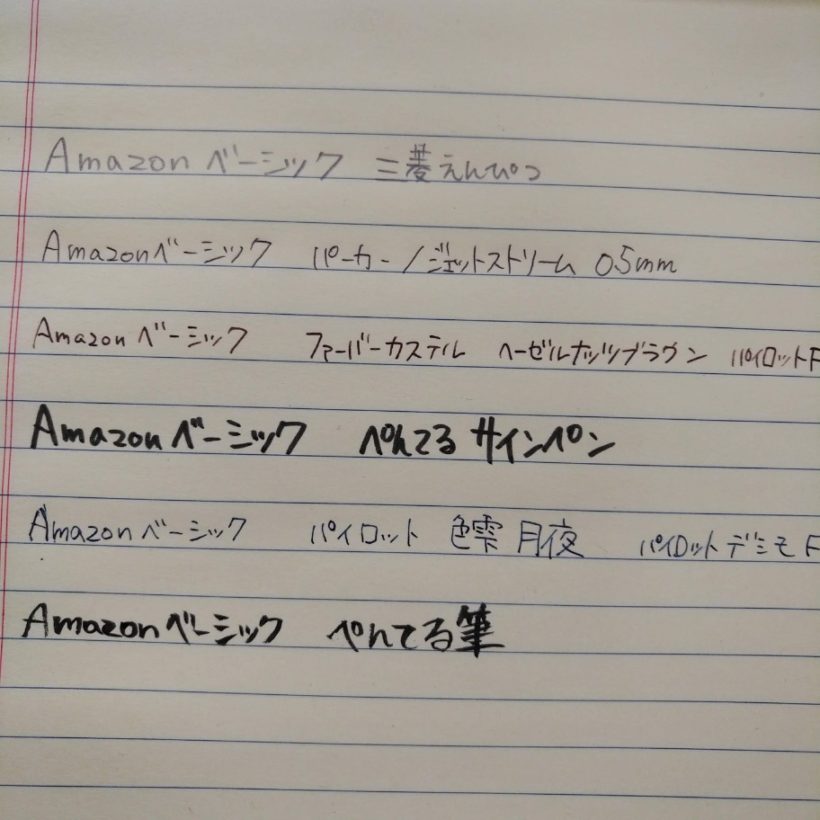 Amazon ベーシック 三菱えんぴつ
Amazonベーシック パーカー/ジェットストリーム 0.5mm
Amazon ベーシック ファーバーカステル ヘーゼルナッツブラウン パイロットF
Amazon ベーシック ぺんてる サインペン
Amazon ベーシック パイロット 色雫 月夜 パイロットデシモ F
Amazon ベーシック ぺんてる筆